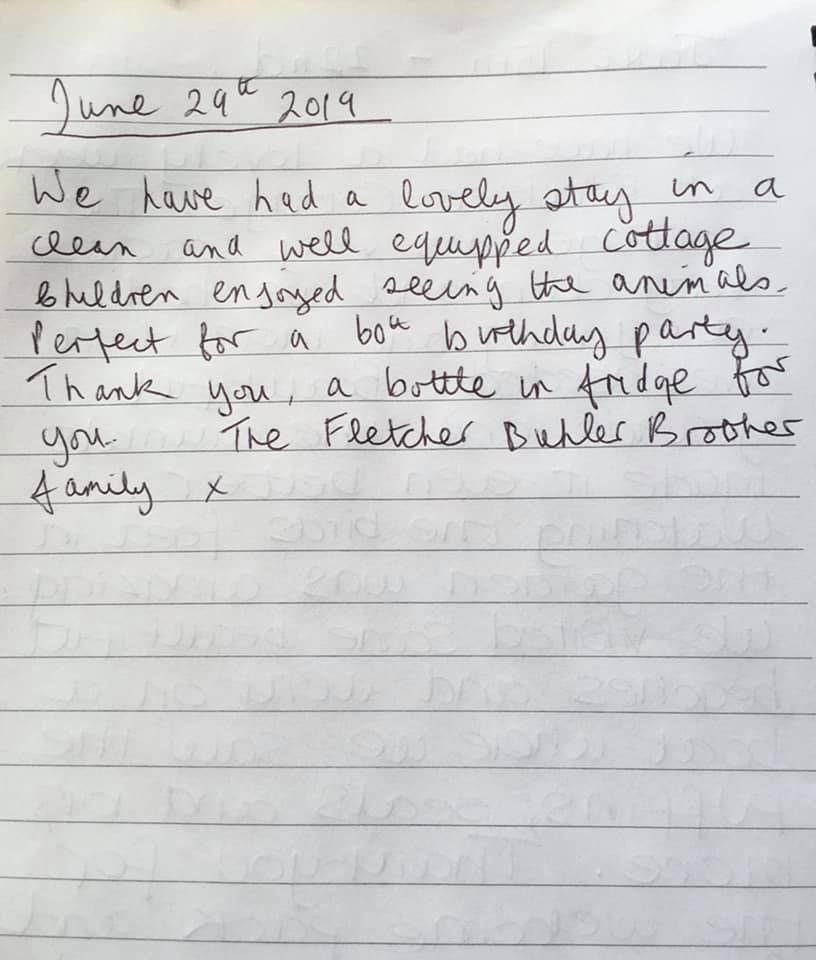 June 29th 2019
We have had a lovely stay in a
clean and well equipped cottage
Children enjoyed seeing the animals.
Perfect for a 60th birthday party.
Thank you, a bottle in fridge for
you. The Fletcher Buhler Brother
family x